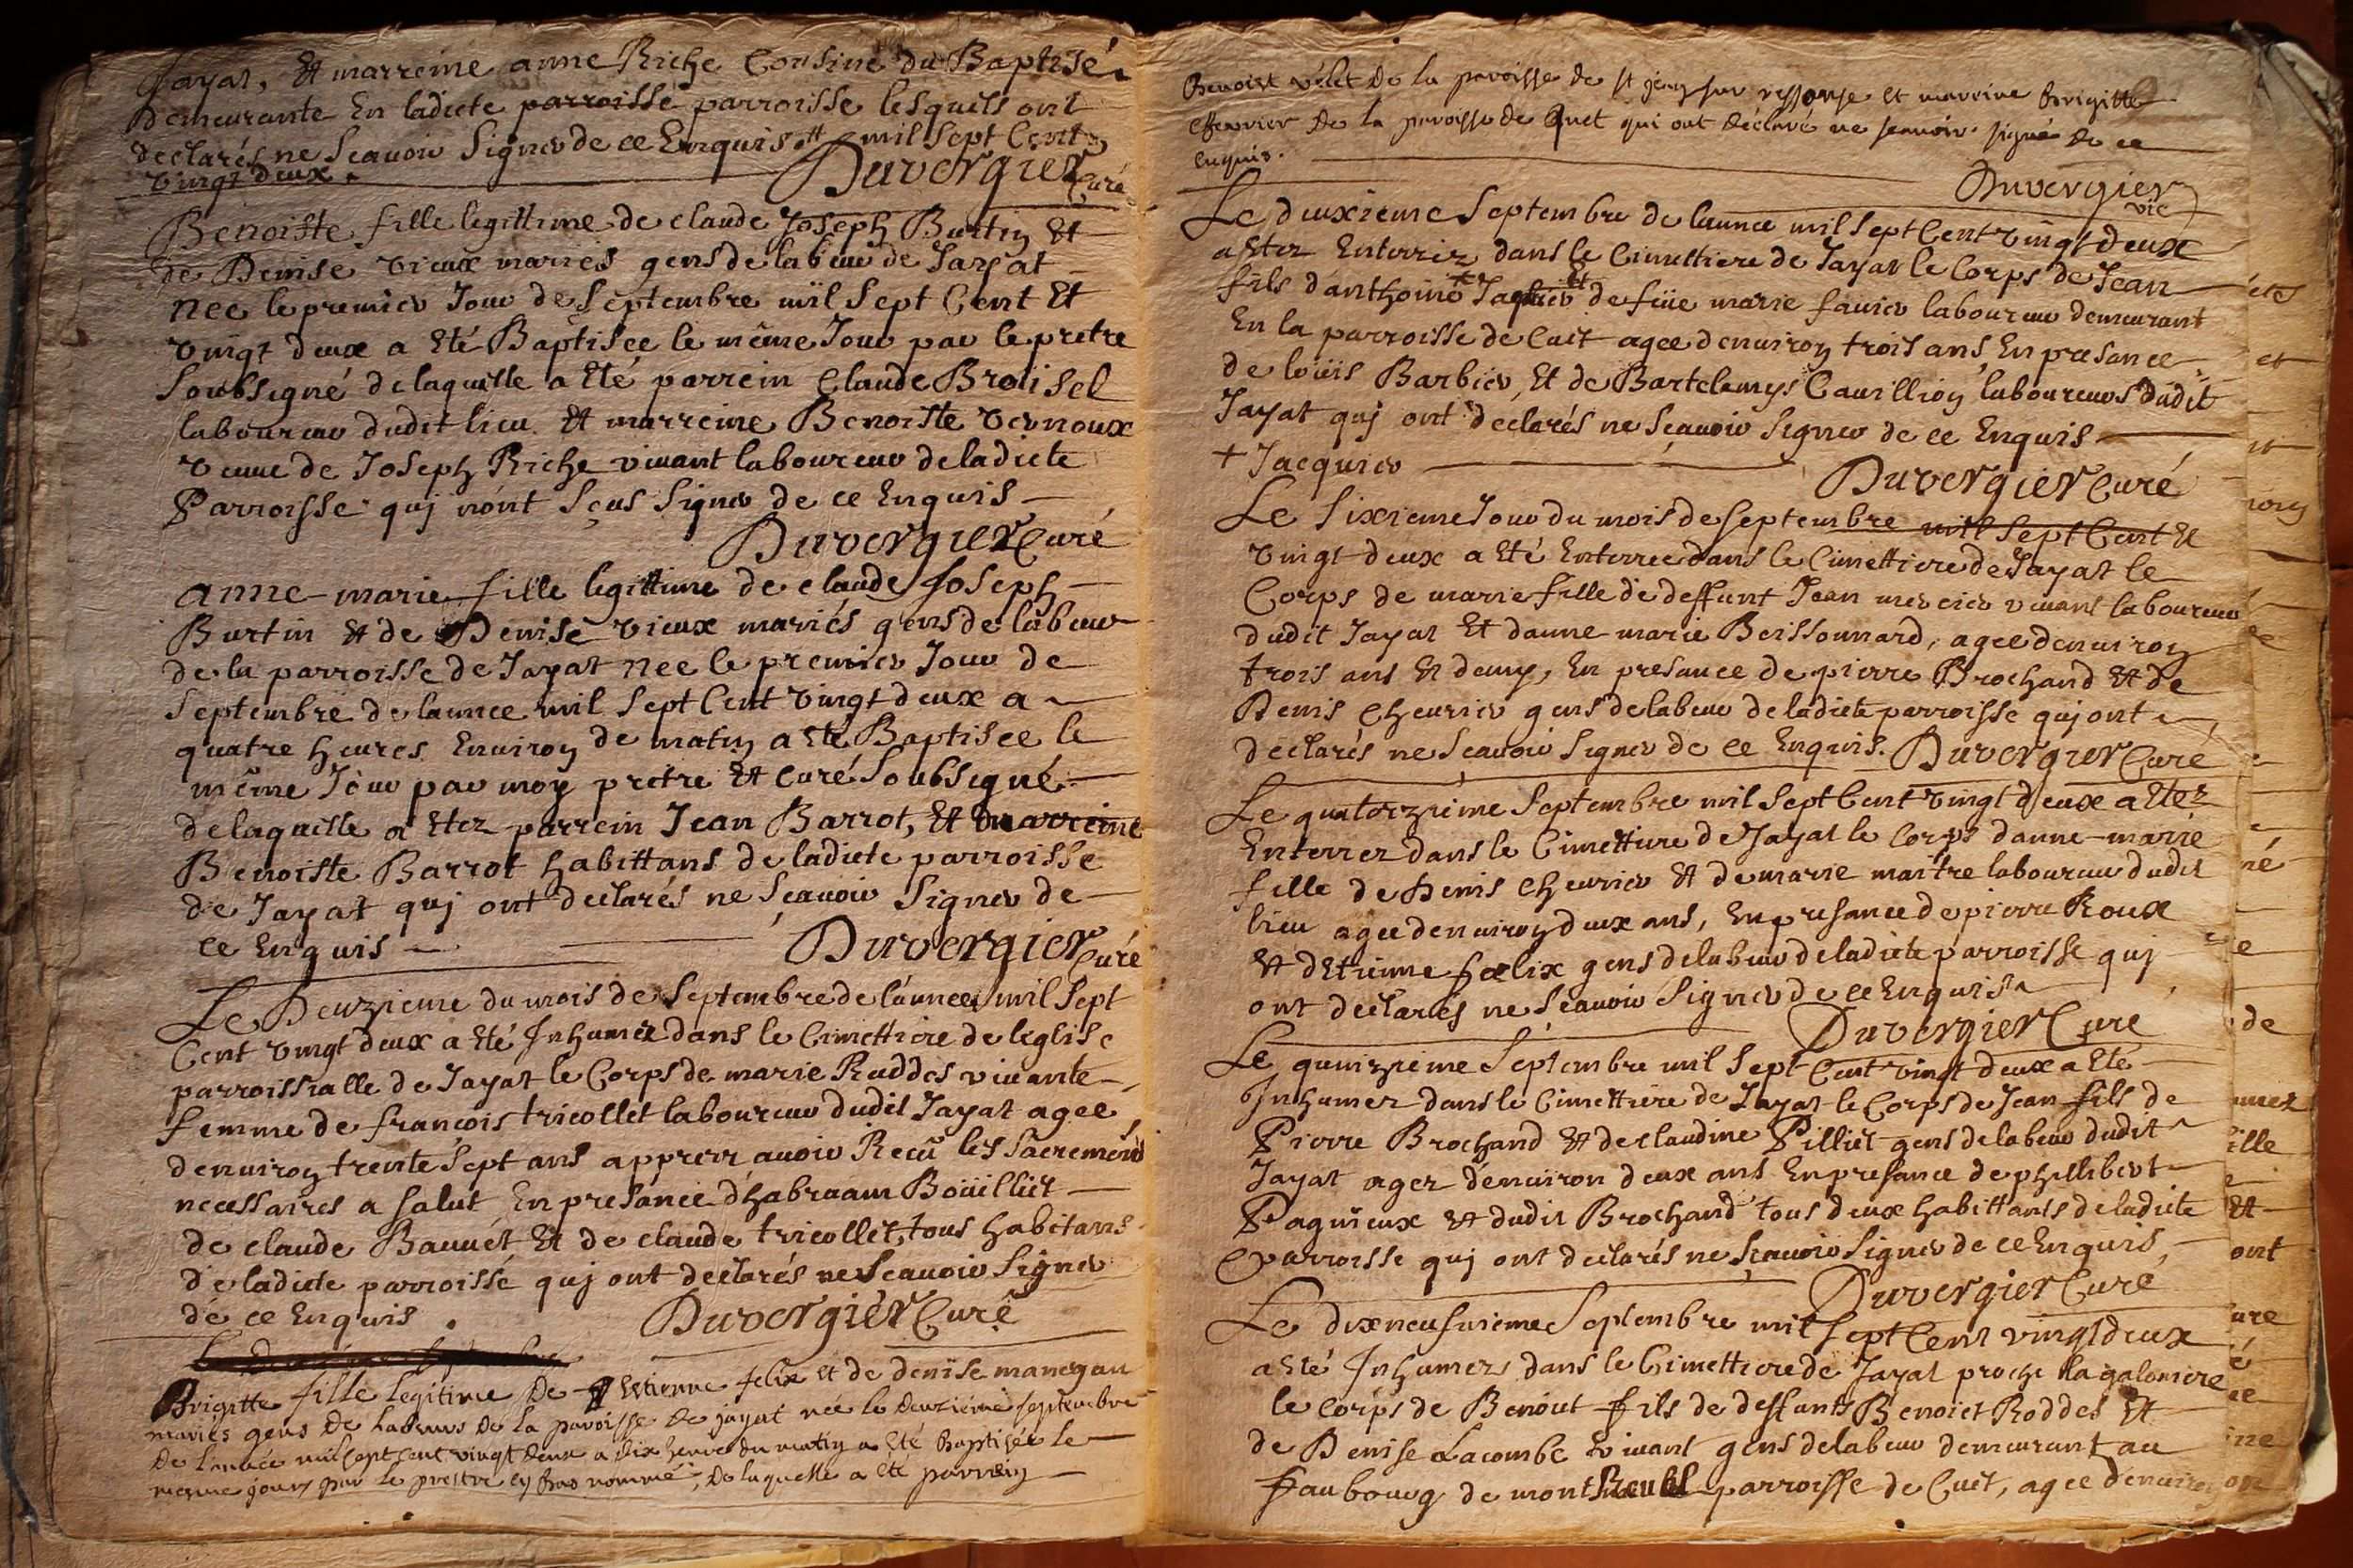 Jayat, Et marreine anne Riche Cousine du Baptisé
demeurante En ladicte parroisse parroisse lesquels ont
declarés ne Scavoir Signer de ce Enquis .# mil sept Cent
vingt deux. Duvergier Curé
Benoiste fille legittime de claude Joseph Burtin Et
de Denise vieux mariés gens de labeur de Jayat
née le premier Jour de Septembre mil Sept Cent Et
vingt deux a Eté Baptisée le même Jour par le pretre
Soubsigné de laquelle a Eté parrein Claude Broüisel
laboureur dudit lieu Et marreine Benoiste Vernoux
veuue de Joseph Riche viuant laboureur de ladicte
Parroisse quj n'ont Sçus Signer de ce Enquis
Duvergier Curé
anne-marie fille legittime de claude Joseph
Burtin Et de Denise vieux mariés gens de labeur
de la parroisse de Jayat née le premier Jour de
Septembre de lannee mil Sept Cent vingt deux a
quatre heures Enuiron de matin a Eté Baptisée le
même Jour par moy pretre Et curé Soubsigné
de laquelle a Etez parrein Jean Barrot, Et marreine
Benoiste Barrot habittans de ladicte parroisse
de Jayat quj ont declarés ne Sçauoir Signer de
ce Enquis Duvergier Curé
Le Deuzieme du mois de Septembre de l'annee mil Sept
Cent vingt deux a Eté Inhumée dans le Cimettiere de leglise
parroissialle de Jayat le Corps de marie Ruddes viuante
femme de francois tricollet laboureur dudit Jayat agee
denuiron trente Sept ans apprez auoir Reçû les Sacrements
necessaires a Salut En presance d'habraam Boüilliet
de claude Bauuet Et de claude tricollet, tous habitans
de ladicte parroisse quj ont declarés ne Scauoir Signer
de ce Enquis. Duvergier Curé
Brigitte fille legitime De Estienne felix et de denise manegan
mariés gens De Labeurs De la paroisse De jayat née le Deuziéme septembre
De L'année mil sept cent vingt Deux a Dix heure du matin a été Baptisée le
mesme jour par le prestre en bas nommé, De laquelle a été parrein
Benoist vélet De la paroisse de st jean sur ressouse et marreine brigitte
De la paroisse de Quet qui ont Déclaré ne scauoir signé de ce
enquis.
Duvergier vic
Le deuxieme Septembre de lannee mil Sept Cent vingt deux
a Etez Enterrez dans le Cimettiere de Jayat le Corps de Jean
fils danthoine + Et de füe marie fauier laboureur demeurant
En la parroisse de Cuit agee denuiron trois ans En presance
de loüis Barbier, Et de Bartelemys Cauillion laboureurs dudit
Jayat quj ont declarés ne Sçauoir Signer de ce Enquis
+ Jacquier Duvergier Curé
Le Sixieme Jour du mois de Septembre mil Sept Cent Et
vingt deux a Eté Enterree dans le Cimettiere de Jayat le
Corps de marie fille de deffunt Jean mercier viuant laboureur
dudit Jayat Et danne marie Boissonnard, agee denuiron
trois ans Et demy, En presance de pierre Brochand Et de
Denis Cheurier gens de labeur de ladicte parroisse quj ont
declarés ne Sçauoir Signer de ce Enquis. Duvergier Curé
Le quatorzieme Septembre mil Sept Cent vingt deux a Etez
Enterrez dans le Cimettiere de Jayat le Corps danne-marie
fille de Denis Cheurier Et de marie maitre laboureur dudit
lieu agee denuiron deux ans, En presance de pierre Roux
Et d'Etienne foelix gens de labeur de ladicte parroisse quj
ont declarés ne Sçauoir Signer de ce Enquis
Duvergier Curé
Le quinzieme Septembre mil Sept Cent vingt deux a Eté
Inhumez dans le Cimettiere de Jayat le Corps de Jean fils de
Pierre Brochand Et de claudine Pilliet gens de labeur dudit
Jayat agez denuiron deux ans En presance de phillibert
Paguieux Et dudit Brochand tous deux habittants de ladicte
parroisse quj ont declarés ne Sçauoir Signer de ce Enquis
Duvergier Curé
Le dixneufuieme Septembre mil Sept Cent vingt deux
a Eté Inhumez dans le Cimettiere de Jayat proche la galoniere
le Corps de Benoit fils de deffants Benoiet Roddes Et
de Denise Lacombe viuant gens de labeur demeurant au
faubourg de parroisse de Cuit, agee denuiron